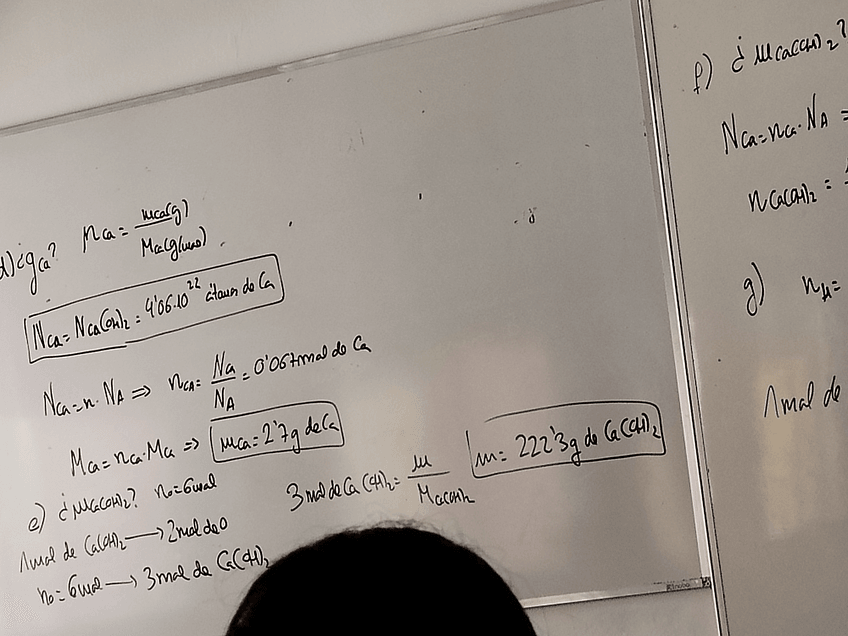 d) ¿g Ca? n Ca = m Ca(g) / M Ca(g/mol)
N Ca = N Ca(OH)₂ = 4'06·10²² átomos de Ca
N Ca = n · N A ⇒ n CA = Na / N A = 0'067 mol de Ca
M Ca = n Ca · M Ca ⇒ m Ca = 2'7 g de Ca
e) ¿M Ca(OH)₂? n o = 6 mol
1 mol de Ca(OH)₂ → 2 mol de O
n o = 6 mol → 3 mol de Ca(OH)₂
3 mol de Ca(OH)₂ = m / M Ca(OH)₂
m = 222'3 g de Ca(OH)₂
f) ¿M Ca(OH)₂?
N Ca = n Ca · N A =
n Ca(OH)₂ =
g) n H =
1 mol de